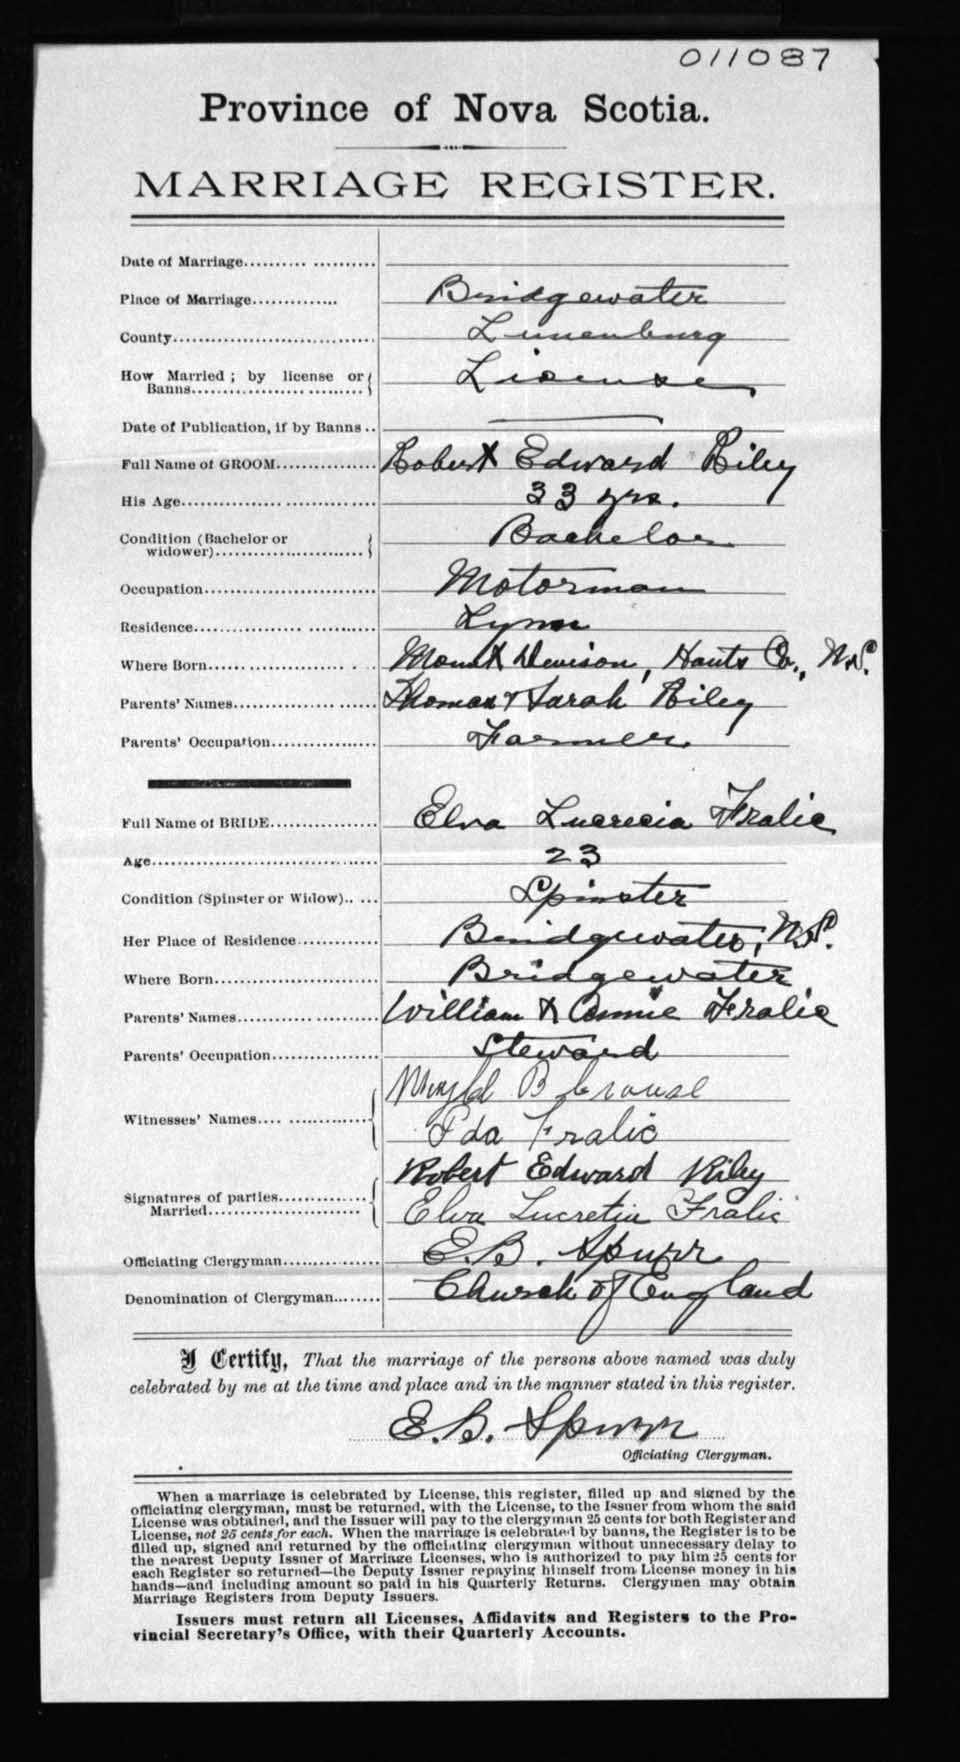 011087
Province of Nova Scotia.
MARRIAGE REGISTER.
Date of Marriage
Place of Marriage Bridgewater
County Lunenburg
How Married ; by license or Banns License
Date of Publication, if by Banns
Full Name of GROOM Robert Edward Riley
His Age 33 yrs.
Condition (Bachelor or widower) Bachelor
Occupation Motorman
Residence Lynn
Where Born Mount Denison, Hants Co., N.S.
Parents' Names Thomas & Sarah Riley
Parents' Occupation Farmer
Full Name of BRIDE Elva Lucrecia Fralic
Age 23
Condition (Spinster or Widow) Spinster
Her Place of Residence Bridgewater, N.S.
Where Born Bridgewater
Parents' Names William & Annie Fralic
Parents' Occupation Steward
Witnesses' Names B Crouse
Ida Fralic
Signatures of parties Married Robert Edward Riley
Elva Lucretia Fralic
Officiating Clergyman E.B. Spurr
Denomination of Clergyman Church of England
I Certify, That the marriage of the persons above named was duly
celebrated by me at the time and place and in the manner stated in this register.
E.B. Spurr
Officiating Clergyman.
When a marriage is celebrated by License, this register, filled up and signed by the
officiating clergyman, must be returned, with the License, to the Issuer from whom the said
License was obtained, and the Issuer will pay to the clergyman 25 cents for both Register and
License, not 25 cents for each. When the marriage is celebrated by banns, the Register is to be
filled up, signed and returned by the officiating clergyman without unnecessary delay to
the nearest Deputy Issuer of Marriage Licenses, who is authorized to pay him 25 cents for
each Register so returned—the Deputy Issuer repaying himself from License money in his
hands—and including amount so paid in his Quarterly Returns. Clergymen may obtain
Marriage Registers from Deputy Issuers.
Issuers must return all Licenses, Affidavits and Registers to the Pro-
vincial Secretary's Office, with their Quarterly Accounts.